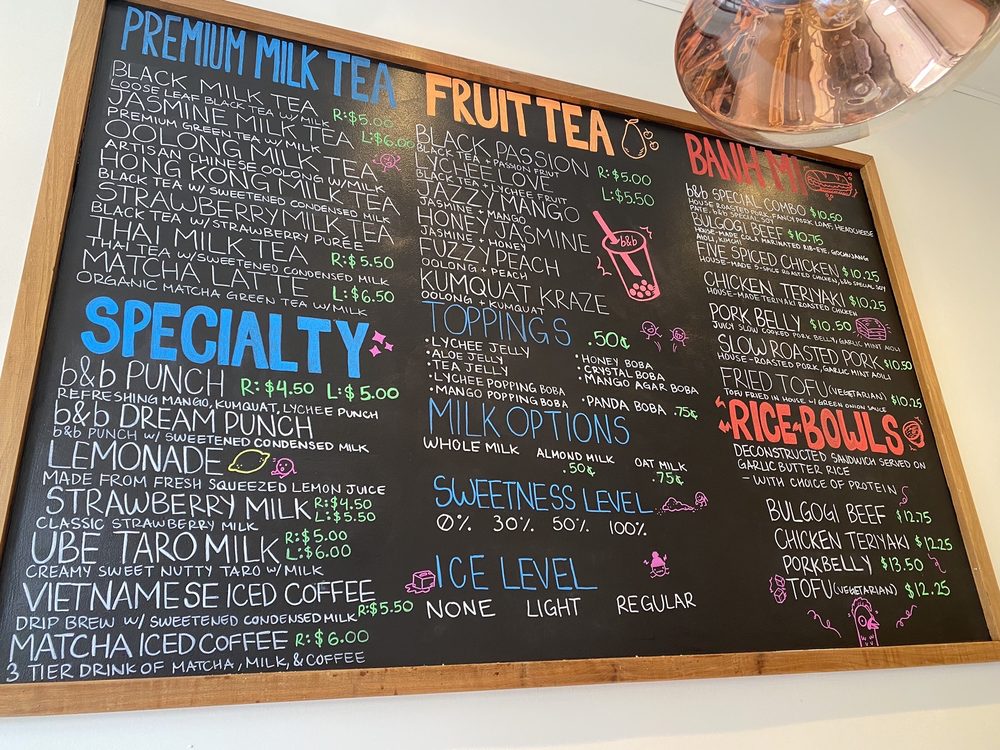 PREMIUM MILK TEA
BLACK MILK TEA
LOOSE LEAF BLACK TEA W/ MILK R:$5.00
JASMINE MILK TEA L:$6.00
PREMIUM GREEN TEA W/ MILK
OOLONG MILK TEA
ARTISAN CHINESE OOLONG W/MILK
HONG KONG MILK TEA
BLACK TEA W/ SWEETENED CONDENSED MILK
STRAWBERRY MILK TEA
BLACK TEA W/ STRAWBERRY PURÉE
THAI MILK TEA R:$5.50
THAI TEA W/SWEETENED CONDENSED MILK
MATCHA LATTE L:$6.50
ORGANIC MATCHA GREEN TEA W/MILK
SPECIALTY
b&b PUNCH R:$4.50 L:$5.00
REFRESHING MANGO, KUMQUAT, LYCHEE PUNCH
b&b DREAM PUNCH
b&b PUNCH W/ SWEETENED CONDENSED MILK
LEMONADE
MADE FROM FRESH SQUEEZED LEMON JUICE
STRAWBERRY MILK R:$4.50
L:$5.50
CLASSIC STRAWBERRY MILK
UBE TARO MILK R:$5.00
L:$6.00
CREAMY SWEET NUTTY TARO W/MILK
VIETNAMESE ICED COFFEE
DRIP BREW W/ SWEETENED CONDENSED MILK R:$5.50
MATCHA ICED COFFEE R:$6.00
3 TIER DRINK OF MATCHA, MILK, & COFFEE
FRUIT TEA
BLACK PASSION R:$5.00
BLACK TEA + PASSION FRUIT
LYCHEE LOVE L:$5.50
BLACK TEA + LYCHEE FRUIT
JAZZY MANGO
JASMINE + MANGO
HONEY JASMINE
JASMINE + HONEY
FUZZY PEACH
OOLONG + PEACH
KUMQUAT KRAZE
OOLONG + KUMQUAT
b&b
TOPPINGS .50¢
• LYCHEE JELLY
• ALOE JELLY
• TEA JELLY
• LYCHEE POPPING BOBA
• MANGO POPPING BOBA
• HONEY BOBA
• CRYSTAL BOBA
• MANGO AGAR BOBA
• PANDA BOBA .75¢
MILK OPTIONS
WHOLE MILK ALMOND MILK OAT MILK
.50¢ .75¢
SWEETNESS LEVEL
0% 30% 50% 100%
ICE LEVEL
NONE LIGHT REGULAR
BANH MI
b&b SPECIAL COMBO $10.50
HOUSE ROASTED PORK, FANCY PORK LOAF, HEADCHEESE
PATE, b&b SPECIAL SOY
BULGOGI BEEF $10.75
HOUSE-MADE COLA MARINATED RIB-EYE, GOCHUJANG
AIOLI, KIMCHI
FIVE SPICED CHICKEN $10.25
HOUSE-MADE 5-SPICE ROASTED CHICKEN, b&b SPECIAL SOY
CHICKEN TERIYAKI $10.25
HOUSE-MADE TERIYAKI ROASTED CHICKEN
PORK BELLY $10.50
JUICY SLOW COOKED PORK BELLY, GARLIC MINT AIOLI
SLOW ROASTED PORK $10.50
HOUSE-ROASTED PORK, GARLIC MINT AIOLI
FRIED TOFU (VEGETARIAN) $10.25
TOFU FRIED IN HOUSE W/ GREEN ONION SAUCE
"RICE BOWLS
DECONSTRUCTED SANDWICH SERVED ON
GARLIC BUTTER RICE
- WITH CHOICE OF PROTEIN
BULGOGI BEEF $12.75
CHICKEN TERIYAKI $12.25
PORKBELLY $13.50
TOFU (VEGETARIAN) $12.25